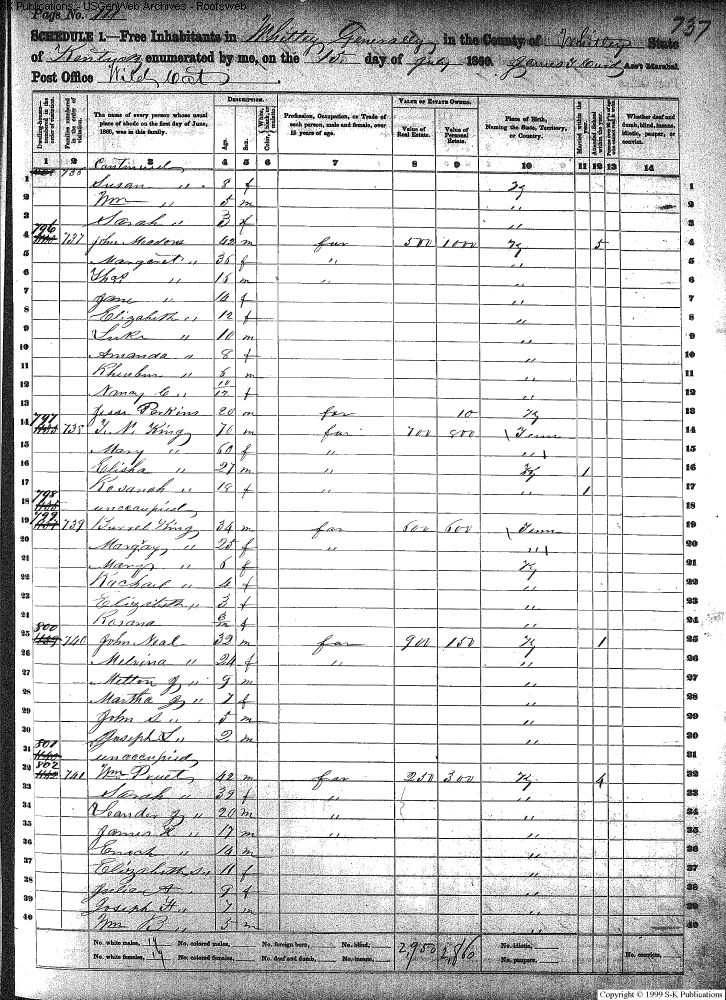 S-K Publications - USGenWeb Archives - Rootsweb
Page No. 111 737
SCHEDULE 1.—Free Inhabitants in Whitley Generally in the County of Whitley State
of Kentucky enumerated by me, on the 15 day of July 1860. Ass't Marshal.
Post Office Wild Cat
DESCRIPTION. VALUE OF ESTATE OWNED.
Dwelling-houses—numbered in the order of visitation. Families numbered in the order of visitation. The name of every person whose usual place of abode on the first day of June, 1860, was in this family. Age. Sex. Color, White, black, or mulatto. Profession, Occupation, or Trade of each person, male and female, over 15 years of age. Value of Real Estate. Value of Personal Estate. Place of Birth, Naming the State, Territory, or Country. Married within the year. Attended School within the year. Whether deaf and dumb, blind, insane, idiotic, pauper, or convict.
1 2 3 4 5 6 7 8 9 10 11 12 13 14
736 Continued
1 Susan " 8 f Ky 1
2 Wm " 5 m " 2
3 Sarah " 3 f " 3
4 796 737 John Meadons 42 m far 500 1000 Ky 5 4
5 Margaret " 36 f " " 5
6 Thos " 15 m " " 6
7 Jane " 14 f " 7
8 Elizabeth " 12 f " 8
9 Luke " 10 m " 9
10 Amanda " 8 f " 10
11 Rheubin " 6 m " 11
12 Nancy C " 10/12 f " 12
13 Jesse Perkins 20 m far 10 Ky 13
14 797 738 T. N. King 70 m far 700 800 Tenn 14
15 Mary " 60 f " " 15
16 Elisha " 27 m " Ky 1 16
17 Rosanah " 18 f " " 1 17
18 798 unoccupied 18
19 799 739 Burrel King 34 m far 600 600 Tenn 19
20 Margay " 25 f " " 20
21 Mary " 6 f Ky 21
22 Rachael " 4 f " 22
23 Elizabeth " 3 f " 23
24 Rosana f " 24
25 800 740 John Neal 32 m far 900 150 Ky 1 25
26 Melvina " 24 f " " 26
27 Milton J " 9 m " 27
28 Martha J " 7 f " 28
29 John S " 5 m " 29
30 Joseph S " 2 m " 30
31 801 unoccupied 31
32 802 741 Wm Pruet 42 m far 250 300 Ky 4 32
33 Sarah " 39 f " " 33
34 Leander J " 20 m " " 34
35 James R " 17 m " " 35
36 Enoch " 14 m " 36
37 Elizabeth S " 11 f " 37
38 Julia A " 9 f " 38
39 Joseph H " 7 m " 39
40 Wm B " 5 m " 40
No. white males, 19 No. colored males, No. foreign born, No. blind, 2,950 2,860 No. idiotic, No. convicts,
No. white females, 19 No. colored females, No. deaf and dumb, No. insane, No. paupers,
Copyright © 1999 S-K Publications